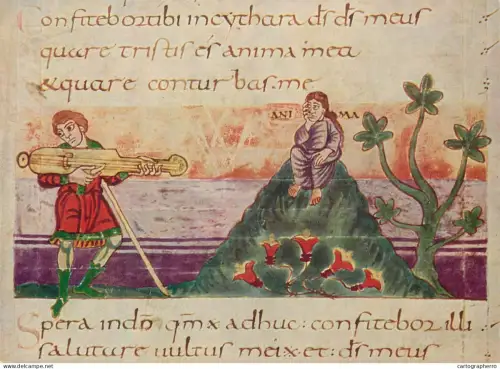 Confitebor tibi in cythara ds ds meus
quare tristis es anima mea
& quare conturbas me
ANI MA
Spera in dō qmx adhuc : confitebor illi
salutare vultus mei & et : ds meus
cartographerro